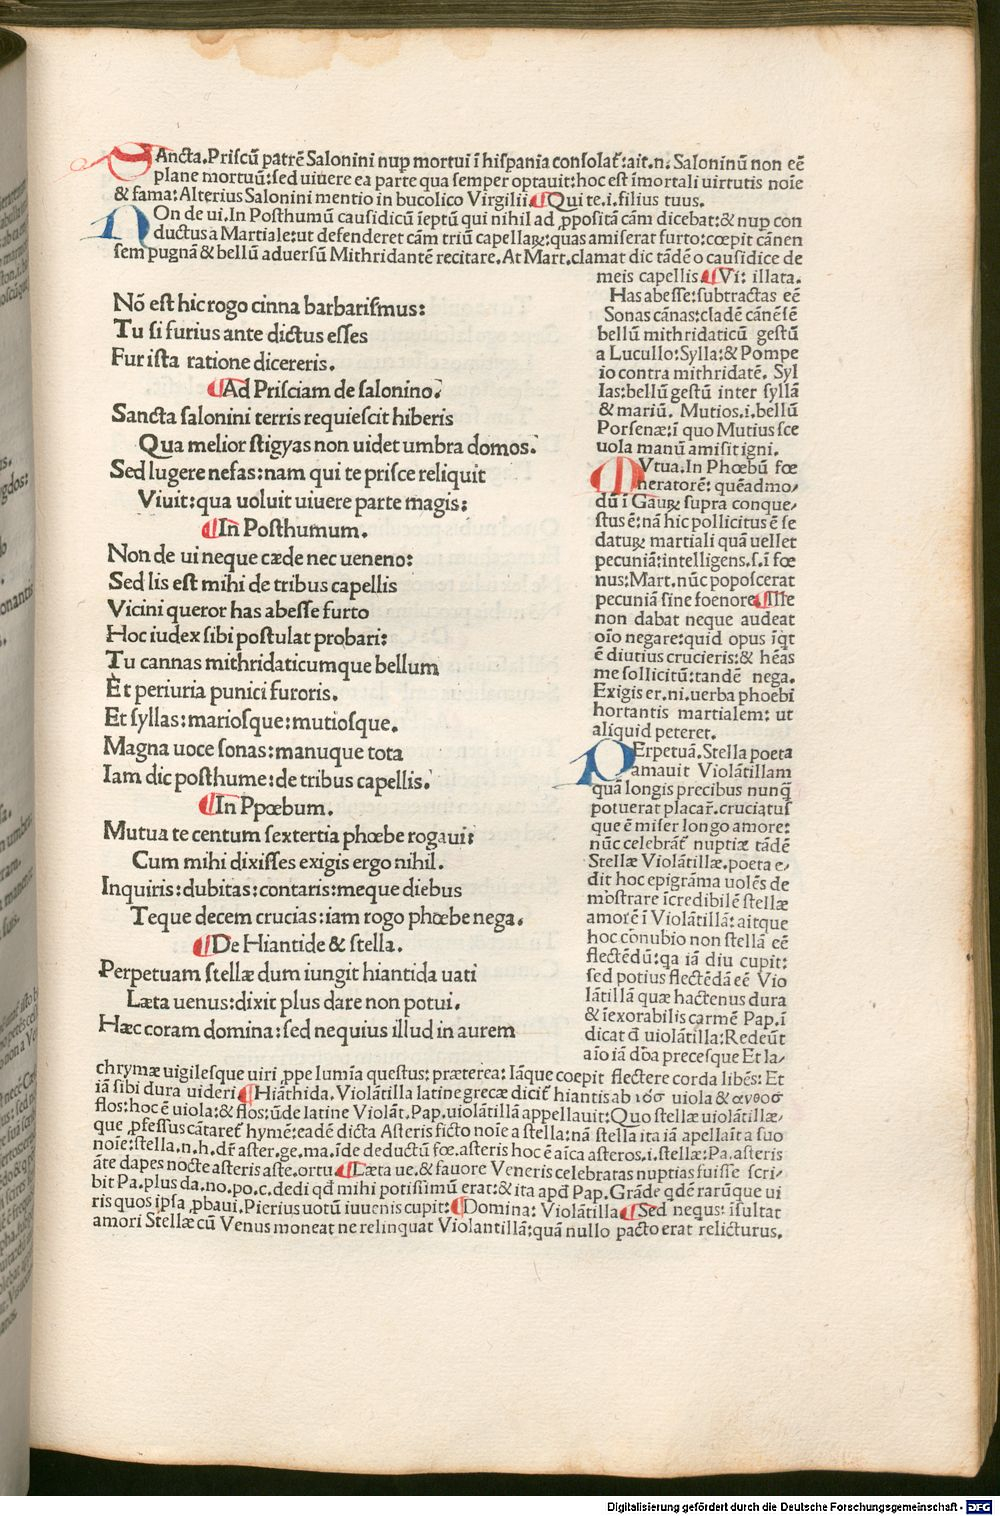 SAncta.Priscū patrē Salonini nup mortui ī hispania consolat̄:ait.n. Saloninū non eē
plane mortuū:sed uiuere ea parte qua semper optauit:hoc est īmortali uirtutis noīe
& fama:Alterius Salonini mentio in bucolico Virgilii ¶Qui te.i.filius tuus.
NOn de ui.In Posthumū causidicū īeptū qui nihil ad ꝓpositā cām dicebat:& nup con
ductus a Martiale:ut defenderet cām triū capellaꝝ:quas amiserat furto:cœpit cānen
sem pugnā & bellū aduersū Mithridantē recitare.At Mart.clamat dic tādē o causidice de
meis capellis ¶Vi: illata.
Has abesse:subtractas eē
Sonas cānas:cladē cānēsē
bellū mithridaticū gestū
a Lucullo:Sylla:& Pompe
io contra mithridatē. Syl
las:bellū gestū inter syllā
& mariū. Mutios.i.bellū
Porsenæ:ī quo Mutius sce
uola manū amisit igni.
MVtua.In Phœbū fœ
neratorē: quēadmo/
dū ī Gauꝝ supra conque/
stus ē:nā hic pollicitus ē se
datuꝝ martiali quā uellet
pecuniā:intelligens.s.ī fœ
nus:Mart.nūc poposcerat
pecuniā sine foenore ¶Me
non dabat neque audeat
oīo negare:quid opus īqt
ē diutius crucieris:& hēas
me sollicitū:tandē nega.
Exigis er.ni.uerba phoebi
hortantis martialem: ut
aliquid peteret.
PErpetuā.Stella poeta
amauit Violātillam
quā longis precibus nunq̄
potuerat placar̄.cruciatus
que ē miser longo amore:
nūc celebrāt̄ nuptiæ tādē
Stellæ Violātillæ.poeta e/
dit hoc epigrāma uolēs de
mōstrare īcredibilē stellæ
amorē ī Violātillā:aitque
hoc conubio non stellā eē
flectēdū:qa iā diu cupit:
sed potius flectēdā eē Vio
lātillā quæ hactenus dura
& īexorabilis carmē Pap.ī
dicat d̄ uiolātilla:Redeūt
aīo iā dn̄a precesque Et la/
Nō est hic rogo cinna barbarismus:
Tu si furius ante dictus esses
Fur ista ratione dicereris.
¶Ad Prisciam de salonino.
Sancta salonini terris requiescit hiberis
Qua melior stigyas non uidet umbra domos.
Sed lugere nefas:nam qui te prisce reliquit
Viuit:qua uoluit uiuere parte magis:
¶In Posthumum.
Non de ui neque cæde nec ueneno:
Sed lis est mihi de tribus capellis
Vicini queror has abesse furto
Hoc iudex sibi postulat probari:
Tu cannas mithridaticumque bellum
Et periuria punici furoris.
Et syllas:mariosque:mutiosque.
Magna uoce sonas:manuque tota
Iam dic posthume:de tribus capellis.
¶In Ppœbum.
Mutua te centum sextertia phœbe rogaui:
Cum mihi dixisses exigis ergo nihil.
Inquiris:dubitas:contaris:meque diebus
Teque decem crucias:iam rogo phœbe nega.
¶De Hiantide & stella.
Perpetuam stellæ dum iungit hiantida uati
Læta uenus:dixit plus dare non potui.
Hæc coram domina:sed nequius illud in aurem
chrymæ uigilesque uiri ꝓpe lumīa questus: præterea: Iāque coepit flectere corda libēs: Et
iā sibi dura uideri ¶Hiāthida. Violātilla latine grecæ dicit̄ hiantis ab ιοσ uiola & ανθοσ
flos:hoc ē uiola:& flos:ūde latine Violāt. Pap.uiolātillā appellauit:Quo stellæ uiolātillæ/
que ꝓfessus cātaret̄ hymē:eadē dicta Asteris ficto noīe a stella:nā stella ita iā apellaīt a suo
noīe:stella.n.h.dr̄ aster.ge.ma.īde deductū fœ.asteris hoc ē aīca asteros.i.stellæ:Pa.asteris
āte dapes nocte asteris aste.ortu ¶Læta ue.& fauore Veneris celebratas nuptias fuisse scri/
bit Pa.plus da.no.po.c.dedi qđ mihi potissimū erat:& ita apđ Pap. Grāde qdē rarūque ui
ris quos ipsa ꝓbaui.Pierius uotū iuuenis cupit: ¶Domina: Violātilla ¶Sed nequs: īsultat
amori Stellæ cū Venus moneat ne relinquat Violantillā:quā nullo pacto erat relicturus.
Digitalisierung gefördert durch die Deutsche Forschungsgemeinschaft - DFG